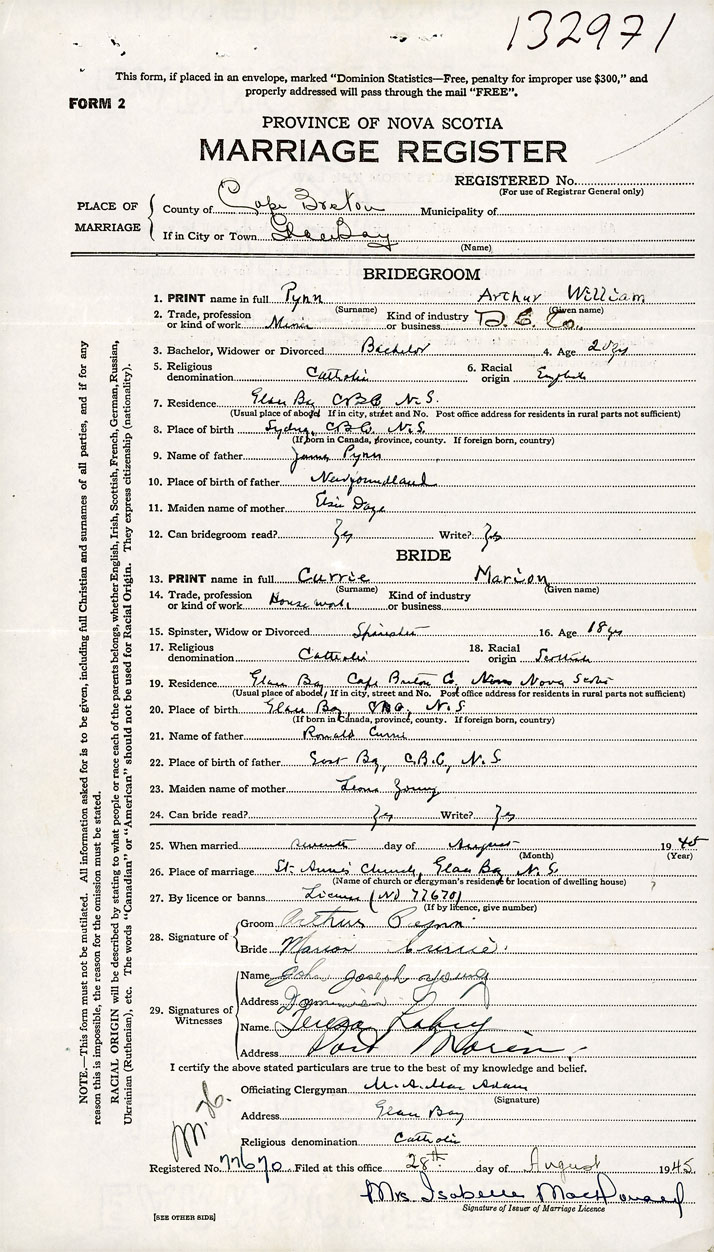 132971
This form, if placed in an envelope, marked "Dominion Statistics—Free, penalty for improper use $300," and
properly addressed will pass through the mail "FREE".
FORM 2
PROVINCE OF NOVA SCOTIA
MARRIAGE REGISTER
REGISTERED No.
(For use of Registrar General only)
PLACE OF MARRIAGE
County of Cape Breton Municipality of
If in City or Town Glace Bay
(Name)
BRIDEGROOM
1. PRINT name in full Pynn Arthur William
(Surname) (Given name)
2. Trade, profession or kind of work Miner Kind of industry or business D. C. Co.
3. Bachelor, Widower or Divorced Bachelor 4. Age 20 yrs
5. Religious denomination Catholic 6. Racial origin English
7. Residence Glace Bay C.B.Co. N.S.
(Usual place of abode) If in city, street and No. Post office address for residents in rural parts not sufficient)
8. Place of birth Sydney, C.B.Co. N.S.
(If born in Canada, province, county. If foreign born, country)
9. Name of father James Pynn
10. Place of birth of father Newfoundland
11. Maiden name of mother Elsie
12. Can bridegroom read? Yes Write? Yes
BRIDE
13. PRINT name in full Currie Marion
(Surname) (Given name)
14. Trade, profession or kind of work House work Kind of industry or business
15. Spinster, Widow or Divorced Spinster 16. Age 18 yrs
17. Religious denomination Catholic 18. Racial origin Scottish
19. Residence Glace Bay Cape Breton Co, Nova Scotia
(Usual place of abode) If in city, street and No. Post office address for residents in rural parts not sufficient)
20. Place of birth Glace Bay, N.S.
(If born in Canada, province, county. If foreign born, country)
21. Name of father Ronald Currie
22. Place of birth of father East Bay, C.B.C, N.S.
23. Maiden name of mother Leona Young
24. Can bride read? Yes Write? Yes
25. When married seventh day of August 1945
(Month) (Year)
26. Place of marriage St. Anne's Church, Glace Bay N.S.
(Name of church or clergyman's residence or location of dwelling house)
27. By licence or banns License (No 77670)
(If by licence, give number)
28. Signature of
Groom Arthur Pynn
Bride Marion Currie
29. Signatures of Witnesses
Name John Joseph Young
Address Dominion
Name Teresa
Address Port Morien
I certify the above stated particulars are true to the best of my knowledge and belief.
Officiating Clergyman M. A. MacAdam
(Signature)
Address Glace Bay
Religious denomination Catholic
Registered No. 77670 Filed at this office 28th day of August 1945
Mrs Isabelle MacDonald
Signature of Issuer of Marriage Licence
[SEE OTHER SIDE]
NOTE.—This form must not be mutilated. All information asked for is to be given, including full Christian and surnames of all parties, and if for any
reason this is impossible, the reason for the omission must be stated.
RACIAL ORIGIN will be described by stating to what people or race each of the parents belongs, whether English, Irish, Scottish, French, German, Russian,
Ukrainian (Ruthenian), etc. The words "Canadian" or "American" should not be used for Racial Origin. They express citizenship (nationality).